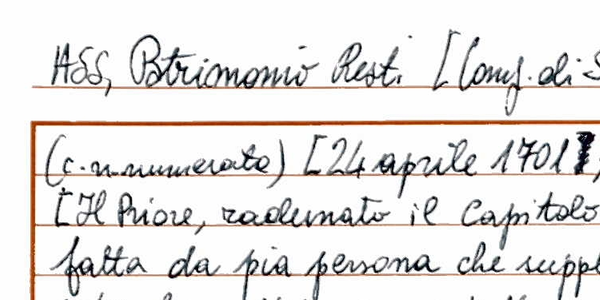 ASS, Patrimonio Resti [Conf. di S
(c. n. numerata) [24 aprile 1701],
[Il Priore, radunato il Capitolo
fatta da pia persona che supp